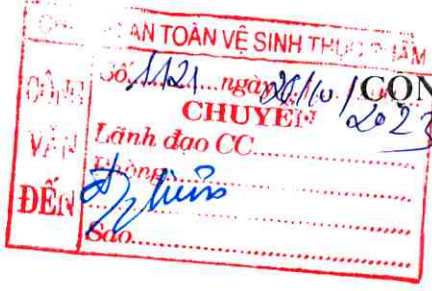 AN TOÀN VỆ SINH THỰC PHẨM
CÔNG VĂN ĐẾN
Số 1121 ngày /10/2023
CHUYỂN
Lãnh đạo CC
Phòng
Sao
CÔN